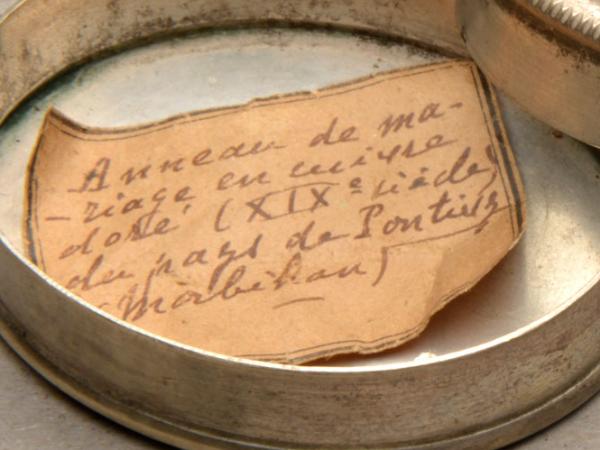 Anneau de ma-
-riage en cuivre
doré (XIXe siècle)
du pays de Pontivy
(Morbihan)